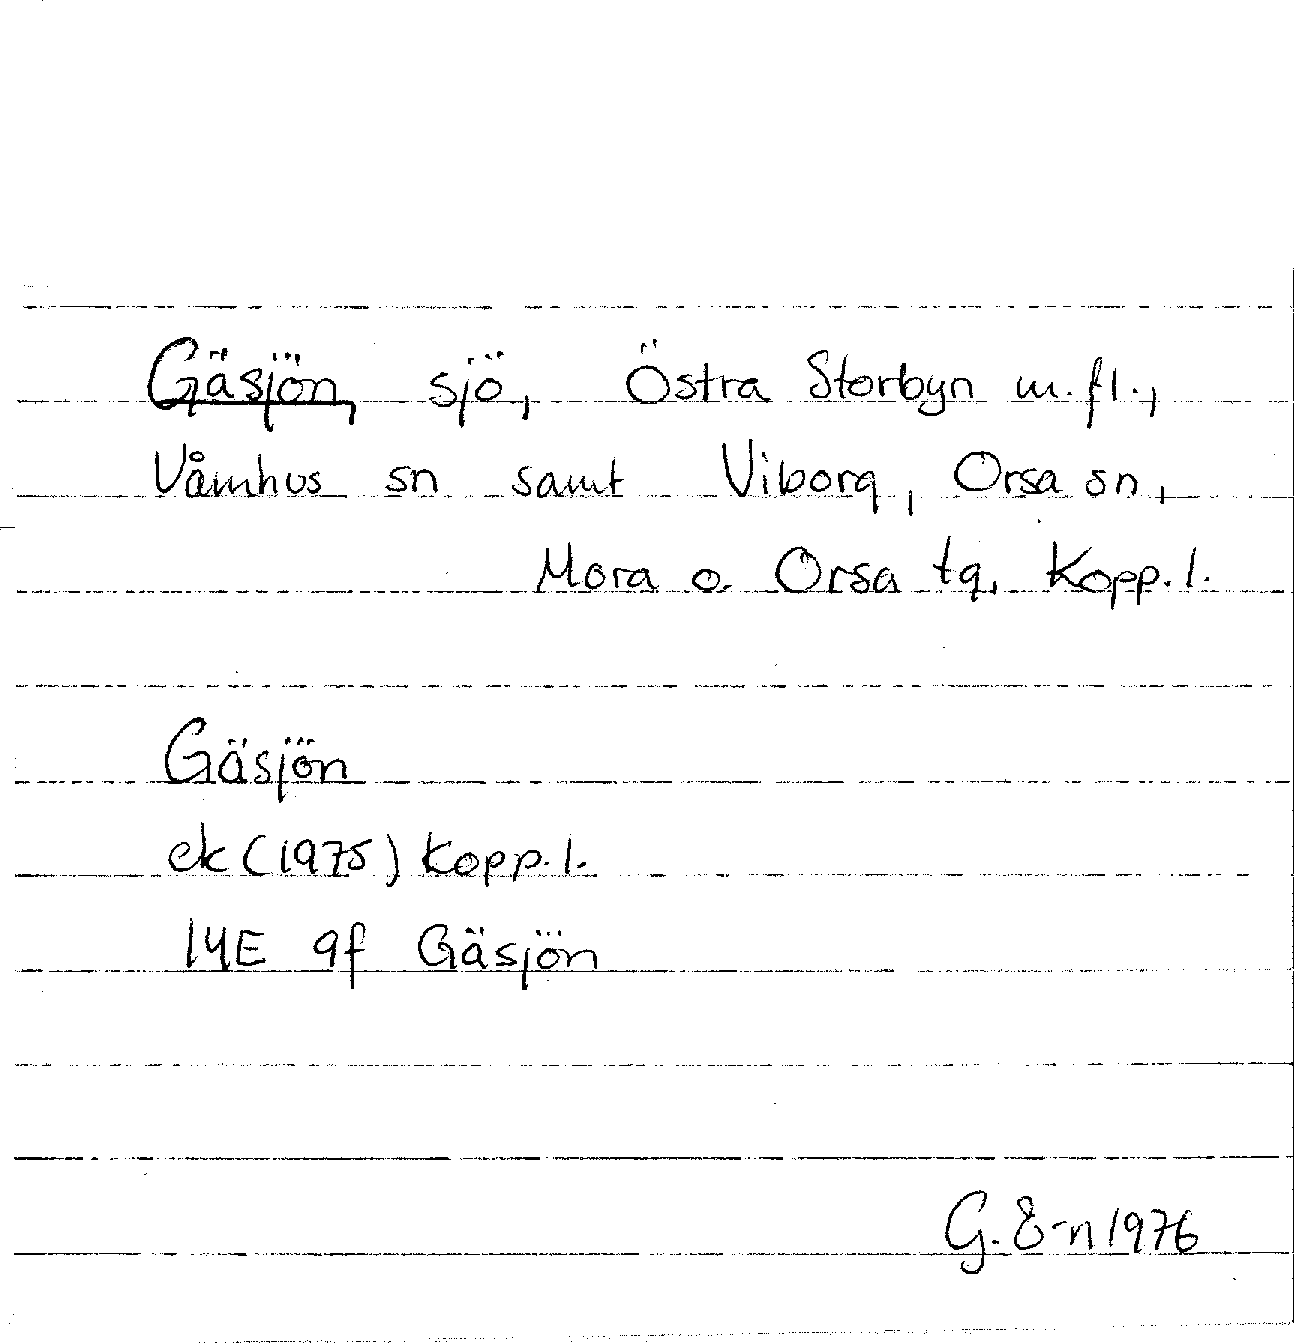 Gäsjön, sjö, Östra Storbyn m.fl.,
Våmhus sn samt Viborg, Orsa sn,
Mora o. Orsa tg, Kopp. l.
Gäsjön
ek (1975) Kopp. l.
14E 9f Gäsjön
G. Ö-n 1976